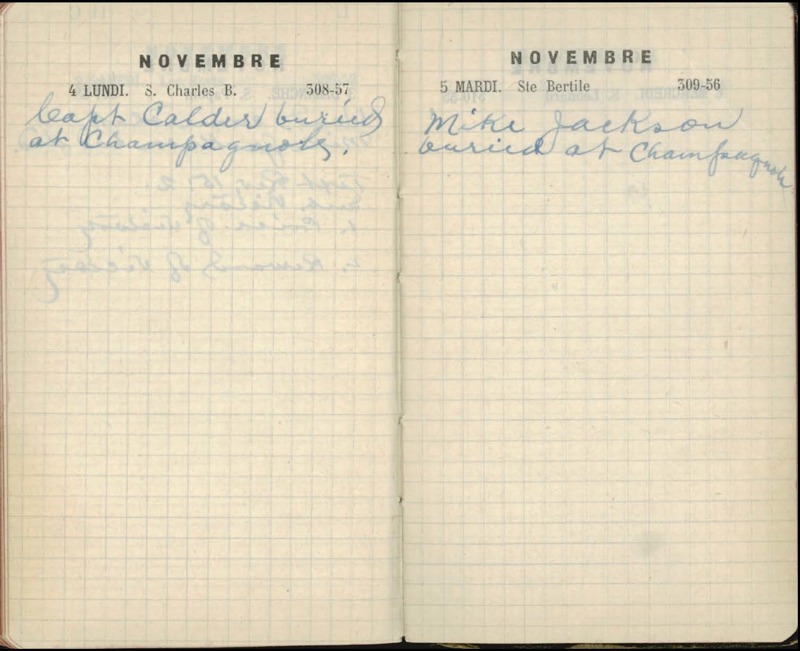 NOVEMBRE
4 LUNDI. S. Charles B. 308-57
Capt Calder buried
at Champagnole.
NOVEMBRE
5 MARDI. Ste Bertile 309-56
Mike Jackson
buried at Champagnole